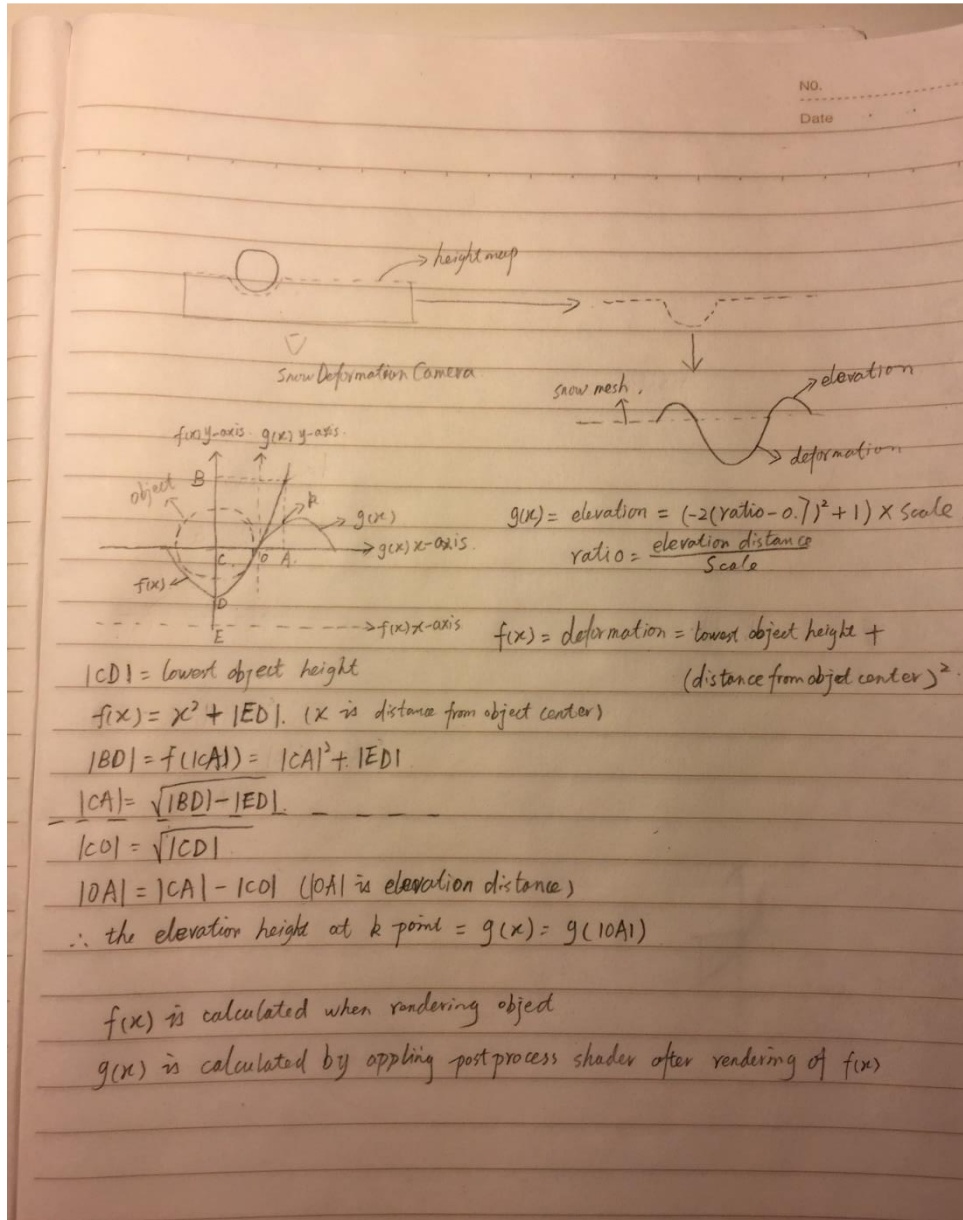 NO.
Date
height map
Snow Deformation Camera
snow mesh.
elevation
deformation
f(x) y-axis. g(x) y-axis.
B
object
k
g(x)
g(x) x-axis.
C. O A.
f(x)
D
f(x) x-axis
E
g(x) = elevation = (-2(ratio-0.7)²+1) × Scale
ratio = elevation distance / Scale
f(x) = deformation = lowest object height +
(distance from object center)².
|CD| = lowest object height
f(x) = x² + |ED|. (x is distance from object center)
|BD| = f(|CA|) = |CA|² + |ED|
|CA| = √|BD|-|ED|.
|CO| = √|CD|
|OA| = |CA| - |CO| (|OA| is elevation distance)
∴ the elevation height at k point = g(x) = g(|OA|)
f(x) is calculated when rendering object
g(x) is calculated by appling postprocess shader after rendering of f(x)